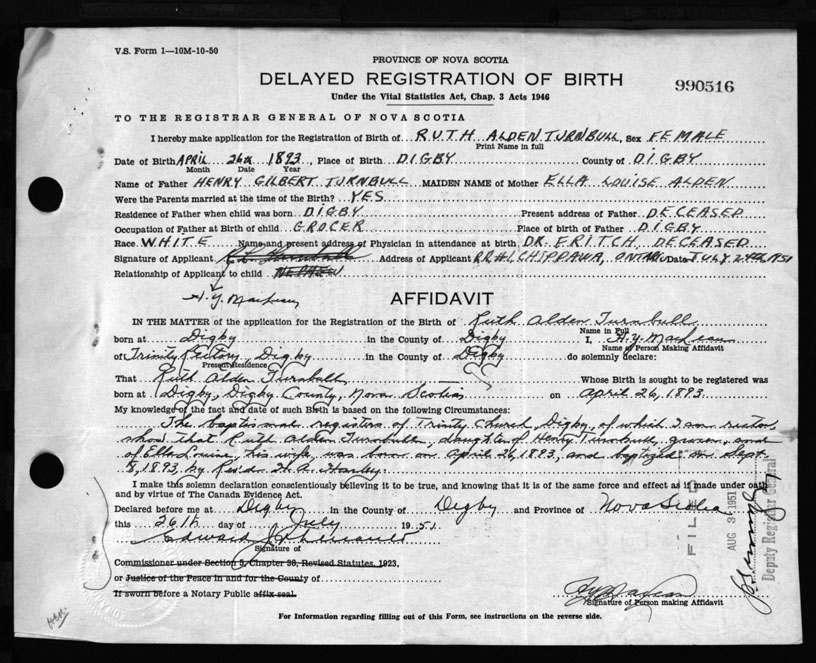 V.S. Form 1—10M-10-50
PROVINCE OF NOVA SCOTIA
DELAYED REGISTRATION OF BIRTH
990516
Under the Vital Statistics Act, Chap. 3 Acts 1946
TO THE REGISTRAR GENERAL OF NOVA SCOTIA
I hereby make application for the Registration of Birth of RUTH ALDEN TURNBULL, Sex FEMALE
Print Name in full
Date of Birth APRIL 26th 1893, Place of Birth DIGBY County of DIGBY
Month Date Year
Name of Father HENRY GILBERT TURNBULL MAIDEN NAME of Mother ELLA LOUISE ALDEN
Were the Parents married at the time of the Birth? YES
Residence of Father when child was born DIGBY Present address of Father DECEASED
Occupation of Father at Birth of child GROCER Place of birth of Father DIGBY
Race WHITE Name and present address of Physician in attendance at birth DR. FRITCH, DECEASED
Signature of Applicant Address of Applicant RR #1, CHIPPAWA, ONTARIO Date JULY 24th 1951
Relationship of Applicant to child NEPHEW
AFFIDAVIT
IN THE MATTER of the application for the Registration of the Birth of Ruth Alden Turnbull
Name in Full
born at Digby in the County of Digby I, H.Y. MacLean
Name of Person Making Affidavit
of Trinity Rectory, Digby in the County of Digby do solemnly declare:
Present Residence
That Ruth Alden Turnbull Whose Birth is sought to be registered was
born at Digby, Digby County, Nova Scotia on April 26, 1893.
My knowledge of the fact and date of such Birth is based on the following Circumstances:
The baptismal registers of Trinity Church, Digby, of which I am rector,
show that Ruth Alden Turnbull, daughter of Henry Turnbull, grocer, and
of Ella Louise, his wife, was born on April 26, 1893, and baptized on Sept.
8, 1893, by Rev. H. A. Harley.
I make this solemn declaration conscientiously believing it to be true, and knowing that it is of the same force and effect as if made under oath
and by virtue of The Canada Evidence Act.
Declared before me at Digby in the County of Digby and Province of Nova Scotia
this 26th day of July 1951
Edward
Signature of
Commissioner under Section 3, Chapter 38, Revised Statutes, 1923,
or Justice of the Peace in and for the County of
If sworn before a Notary Public affix seal.
Signature of Person making Affidavit
For Information regarding filling out of this Form, see instructions on the reverse side.
FILED
AUG 3 1951
Deputy Registrar General